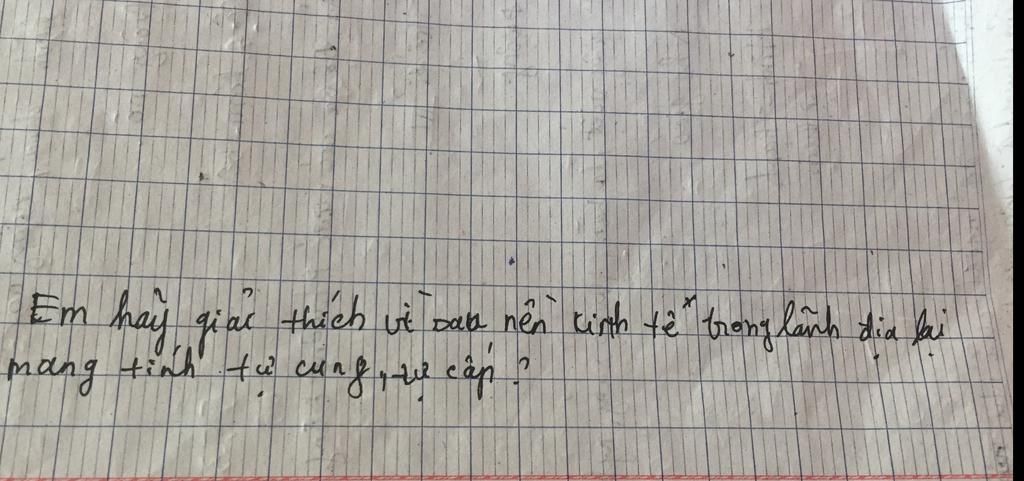 Em hãy giải thích vì sao nền kinh tế trong lãnh địa lại
mang tính tự cung, tự cấp?